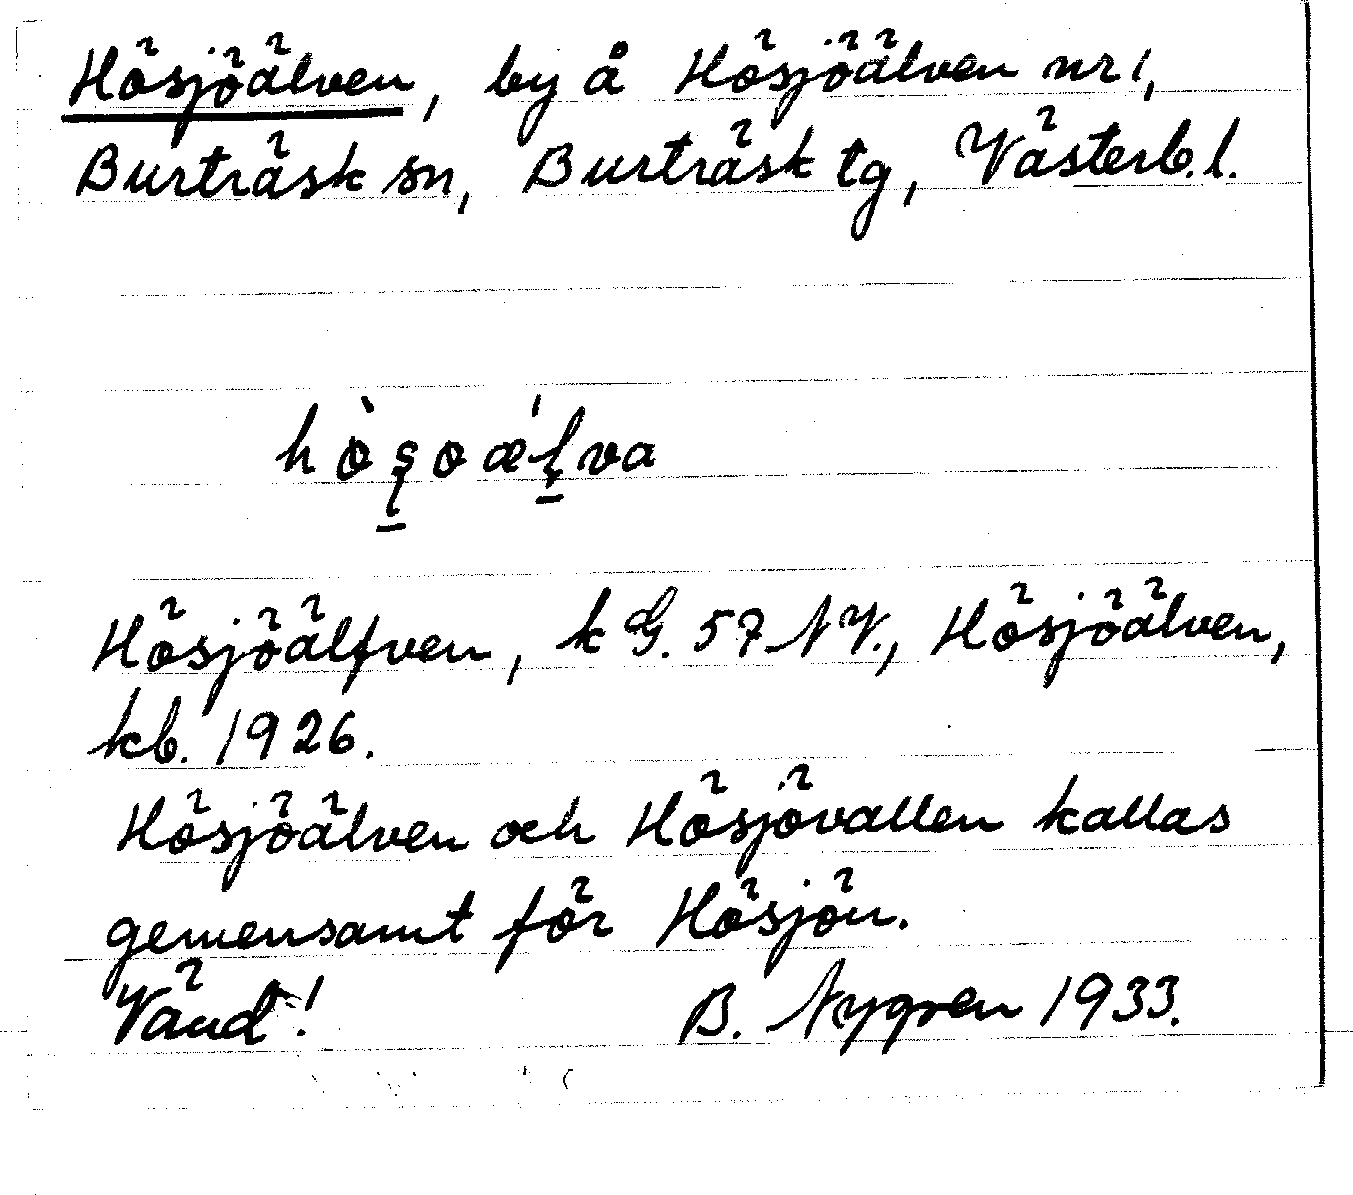 Hösjöälven, by å Hösjöälven nr 1,
Burträsk sn, Burträsk tg, Västerb. l.
Hösjöälfven, k G. 57 NV., Hösjöälven,
kb. 1926.
Hösjöälven och Hösjövallen kallas
gemensamt för Hösjön.
Vänd!
B. Nygren 1933.